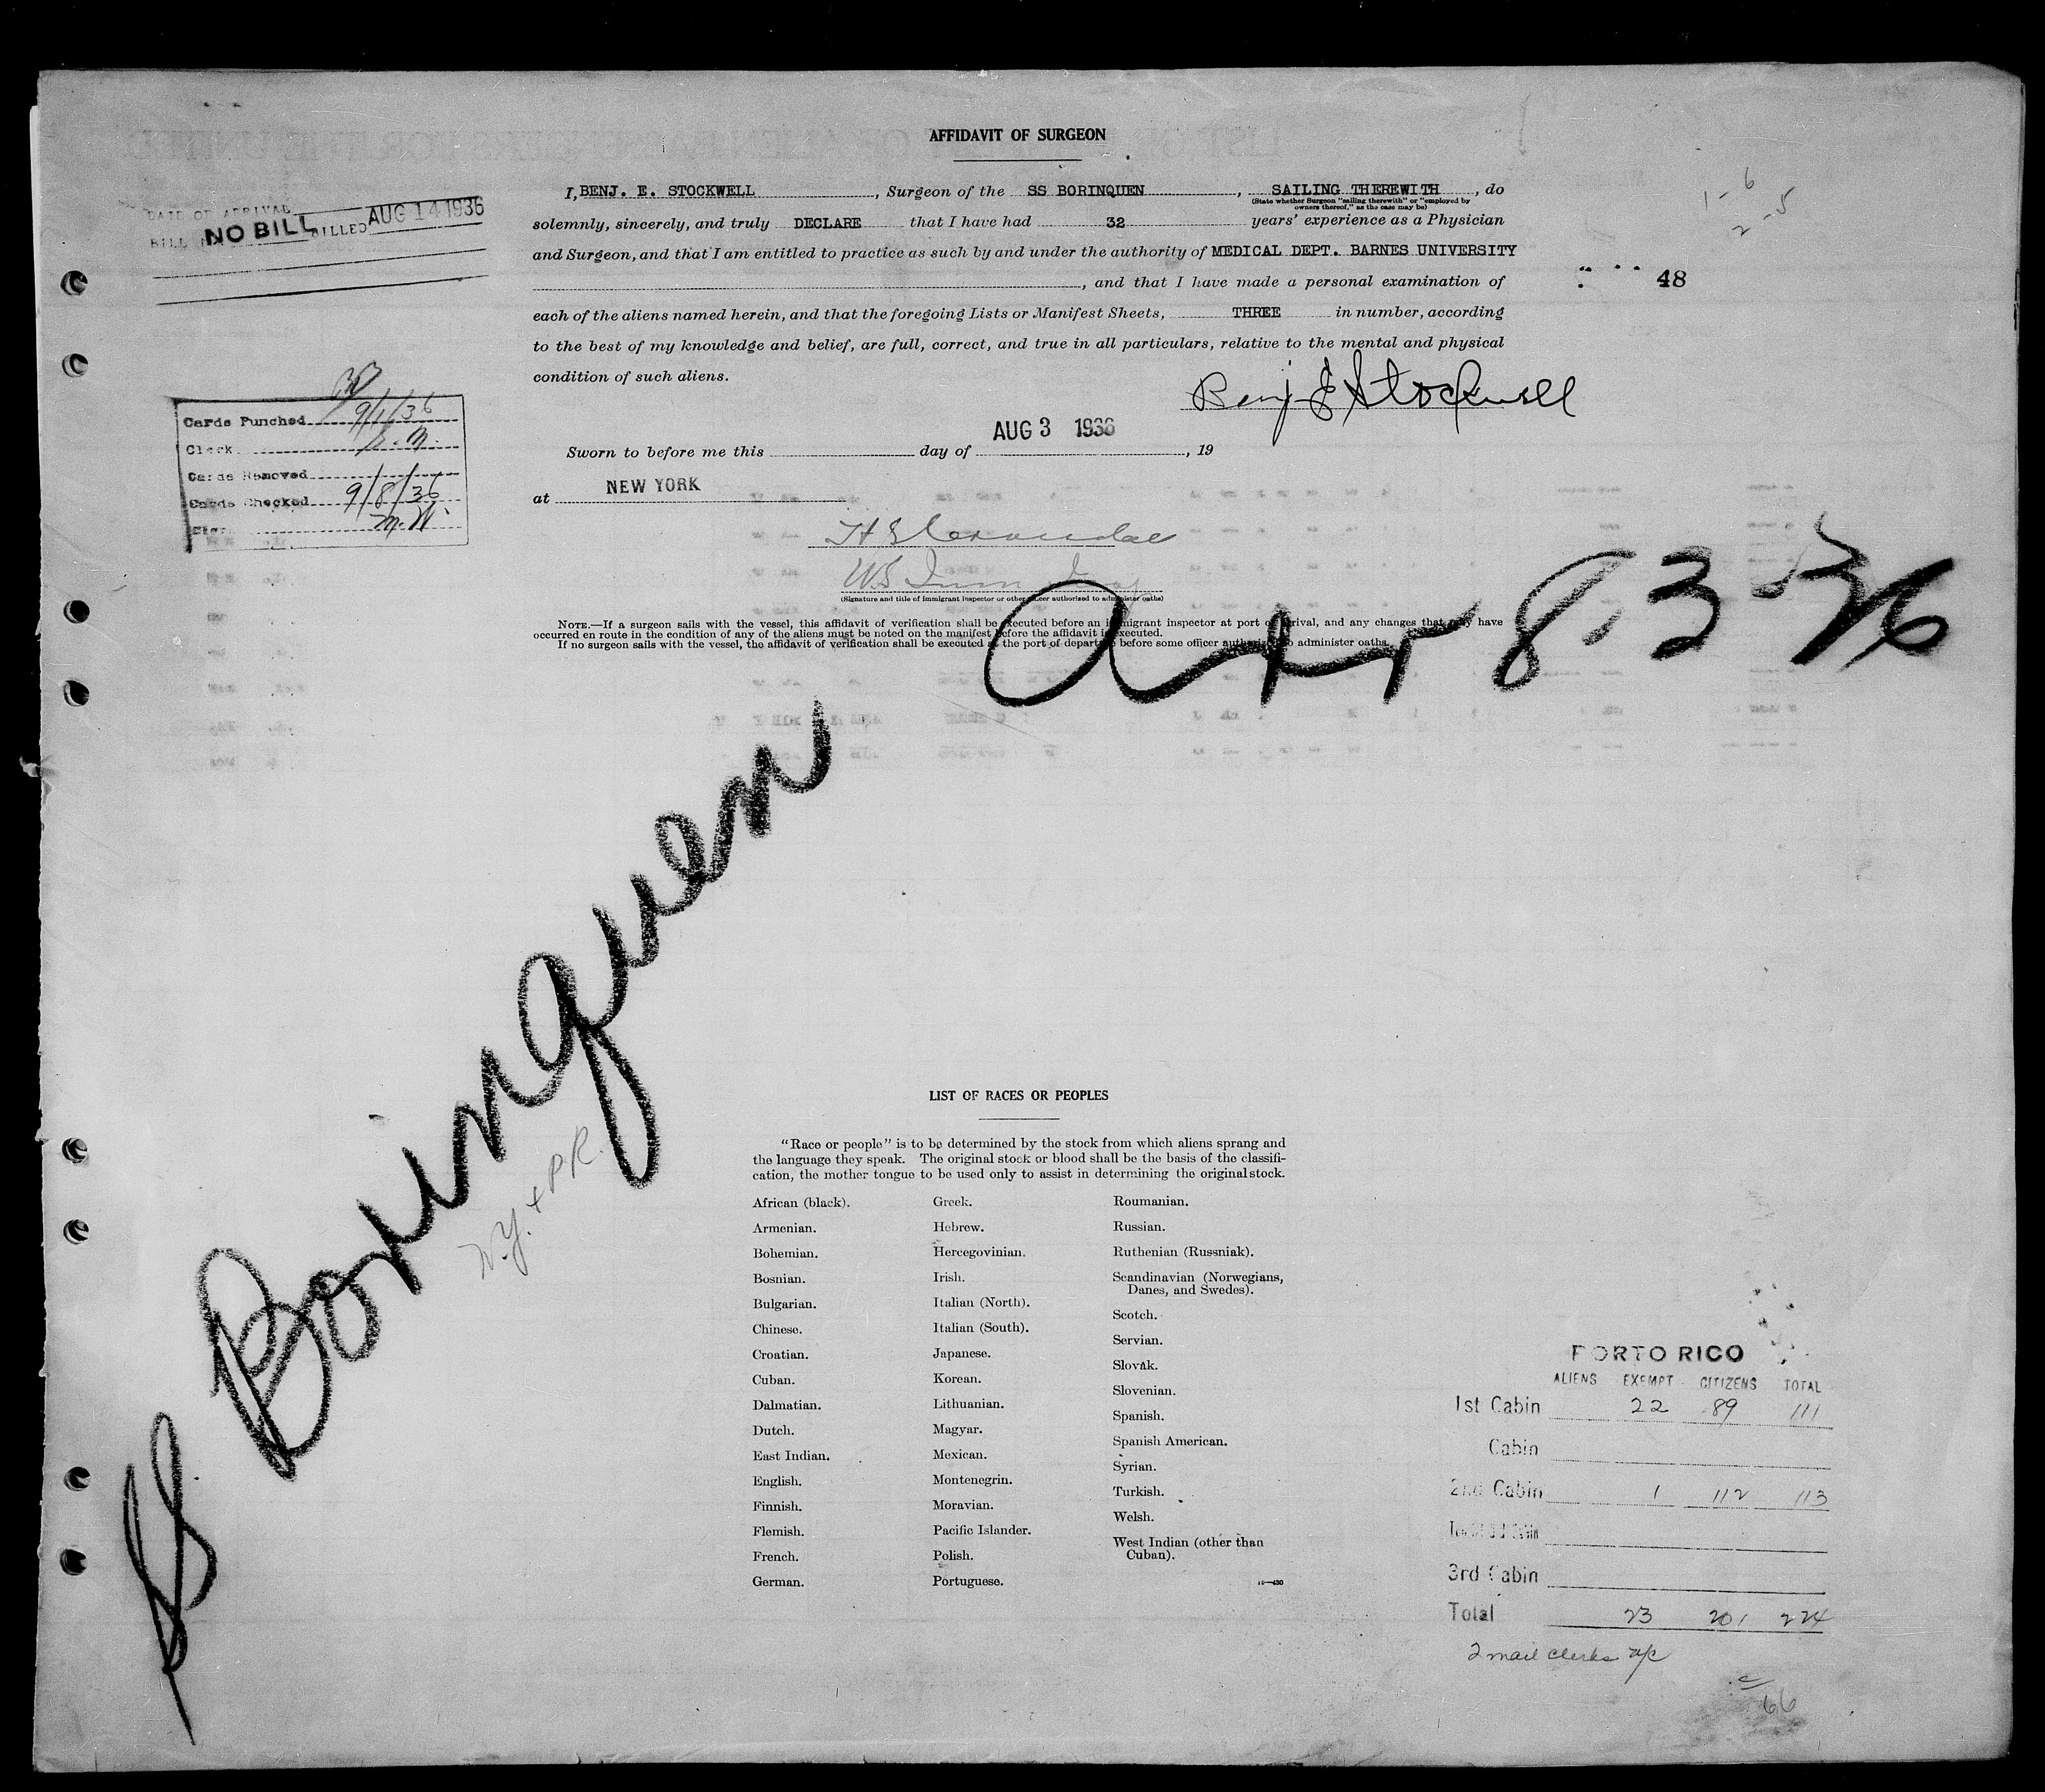 AFFIDAVIT OF SURGEON
I, BENJ. E. STOCKWELL, Surgeon of the SS BORINQUEN, SAILING THEREWITH, do
(State whether Surgeon "sailing therewith" or "employed by
owners thereof," as the case may be)
solemnly, sincerely, and truly DECLARE that I have had 32 years' experience as a Physician
and Surgeon, and that I am entitled to practice as such by and under the authority of MEDICAL DEPT. BARNES UNIVERSITY
, and that I have made a personal examination of
each of the aliens named herein, and that the foregoing Lists or Manifest Sheets, THREE in number, according
to the best of my knowledge and belief, are full, correct, and true in all particulars, relative to the mental and physical
condition of such aliens.
Benj E Stockwell
AUG 3 1936
Sworn to before me this day of , 19
at NEW YORK
(Signature and title of immigrant inspector or other officer authorized to administer oaths)
NOTE.—If a surgeon sails with the vessel, this affidavit of verification shall be executed before an immigrant inspector at port of arrival, and any changes that may have
occurred en route in the condition of any of the aliens must be noted on the manifest before the affidavit is executed.
If no surgeon sails with the vessel, the affidavit of verification shall be executed at the port of departure before some officer authorized to administer oaths.
DATE OF ARRIVAL
BILL NO BILL BILLED AUG 14 1936
48
Cards Punched 9/1/36
Clerk
Cards Removed
Cards Checked 9/8/36
Clerk M.W.
Arr 8.3-36
SS. Borinquen
N.Y. + P.R.
LIST OF RACES OR PEOPLES
"Race or people" is to be determined by the stock from which aliens sprang and
the language they speak. The original stock or blood shall be the basis of the classifi-
cation, the mother tongue to be used only to assist in determining the original stock.
African (black).
Armenian.
Bohemian.
Bosnian.
Bulgarian.
Chinese.
Croatian.
Cuban.
Dalmatian.
Dutch.
East Indian.
English.
Finnish.
Flemish.
French.
German.
Greek.
Hebrew.
Hercegovinian.
Irish.
Italian (North).
Italian (South).
Japanese.
Korean.
Lithuanian.
Magyar.
Mexican.
Montenegrin.
Moravian.
Pacific Islander.
Polish.
Portuguese.
Roumanian.
Russian.
Ruthenian (Russniak).
Scandinavian (Norwegians,
Danes, and Swedes).
Scotch.
Servian.
Slovak.
Slovenian.
Spanish.
Spanish American.
Syrian.
Turkish.
Welsh.
West Indian (other than
Cuban).
PORTO RICO
ALIENS EXEMPT CITIZENS TOTAL
1st Cabin 22 89 111
Cabin
2nd Cabin 1 112 113
3rd Cabin
Total 23 201 224
2 mail clerks
66